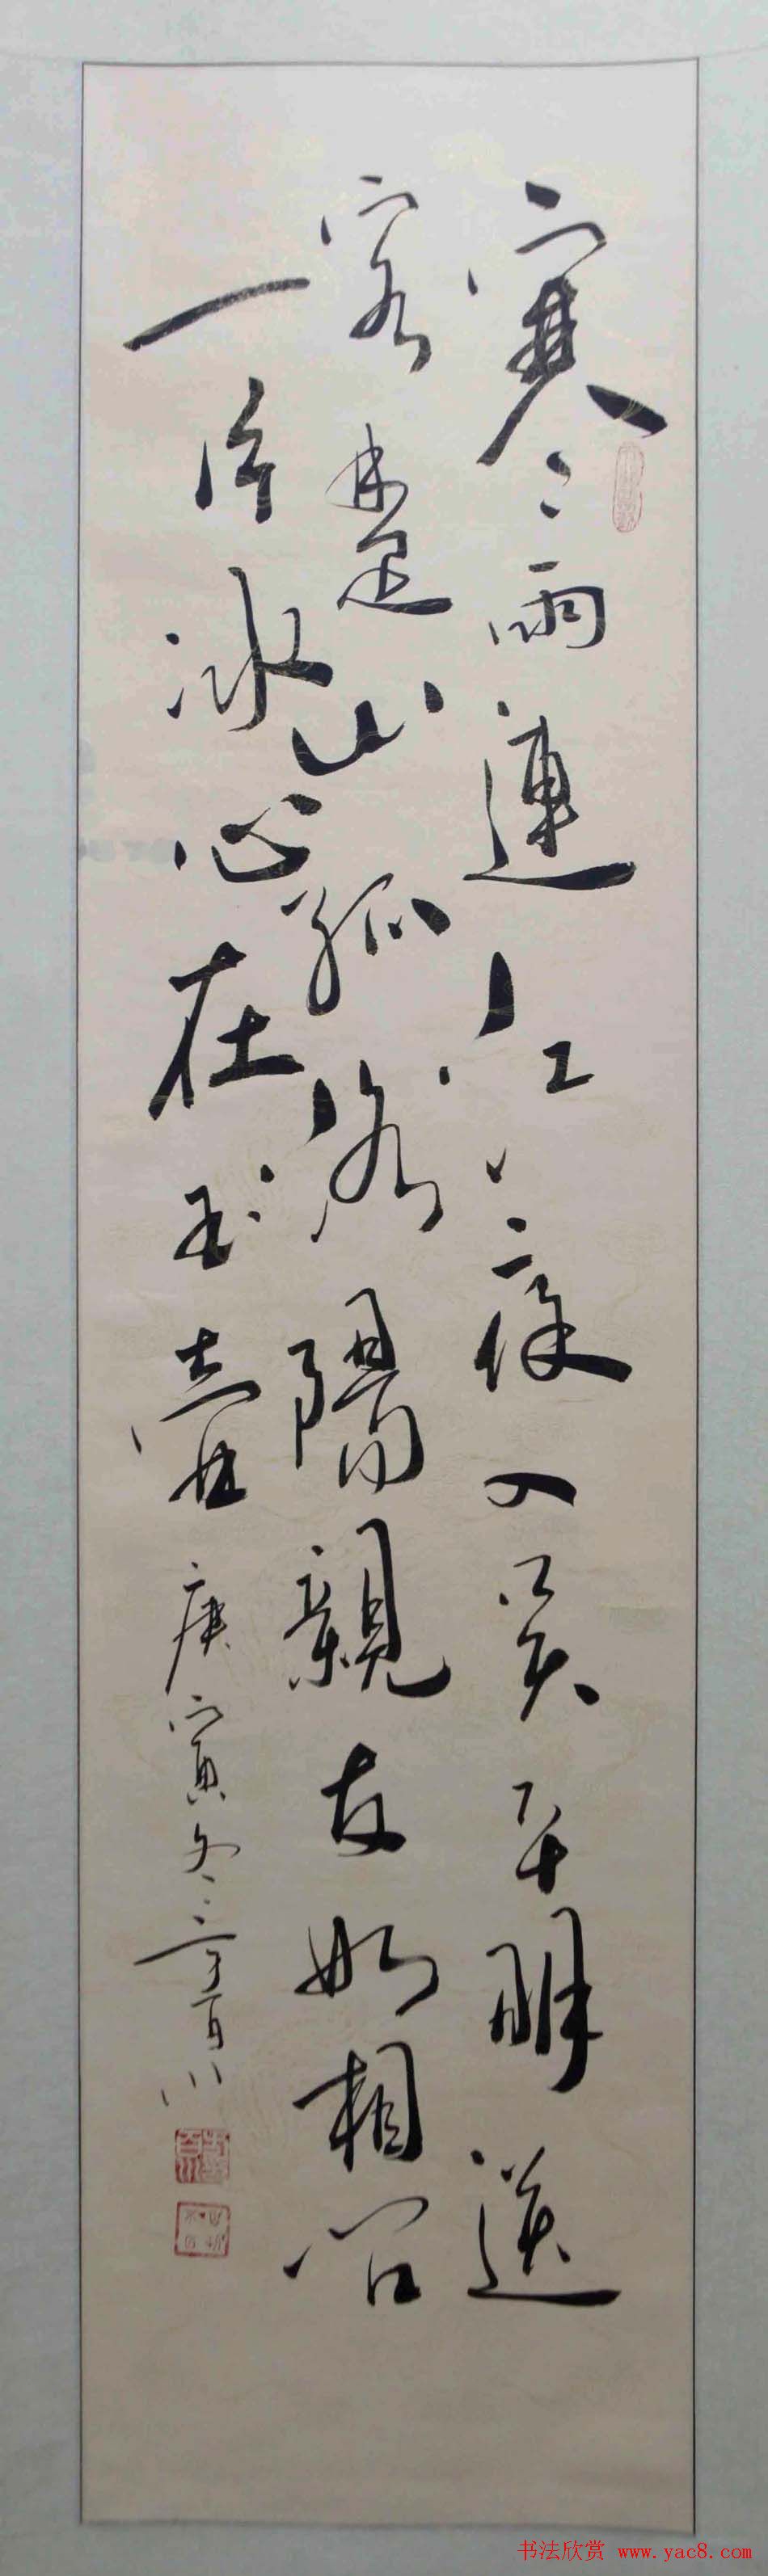 寒雨連江夜入吳平明送
客楚山孤洛陽親友如相問
一片冰心在玉壺 庚寅冬 百川
书法欣赏 www.yac8.com